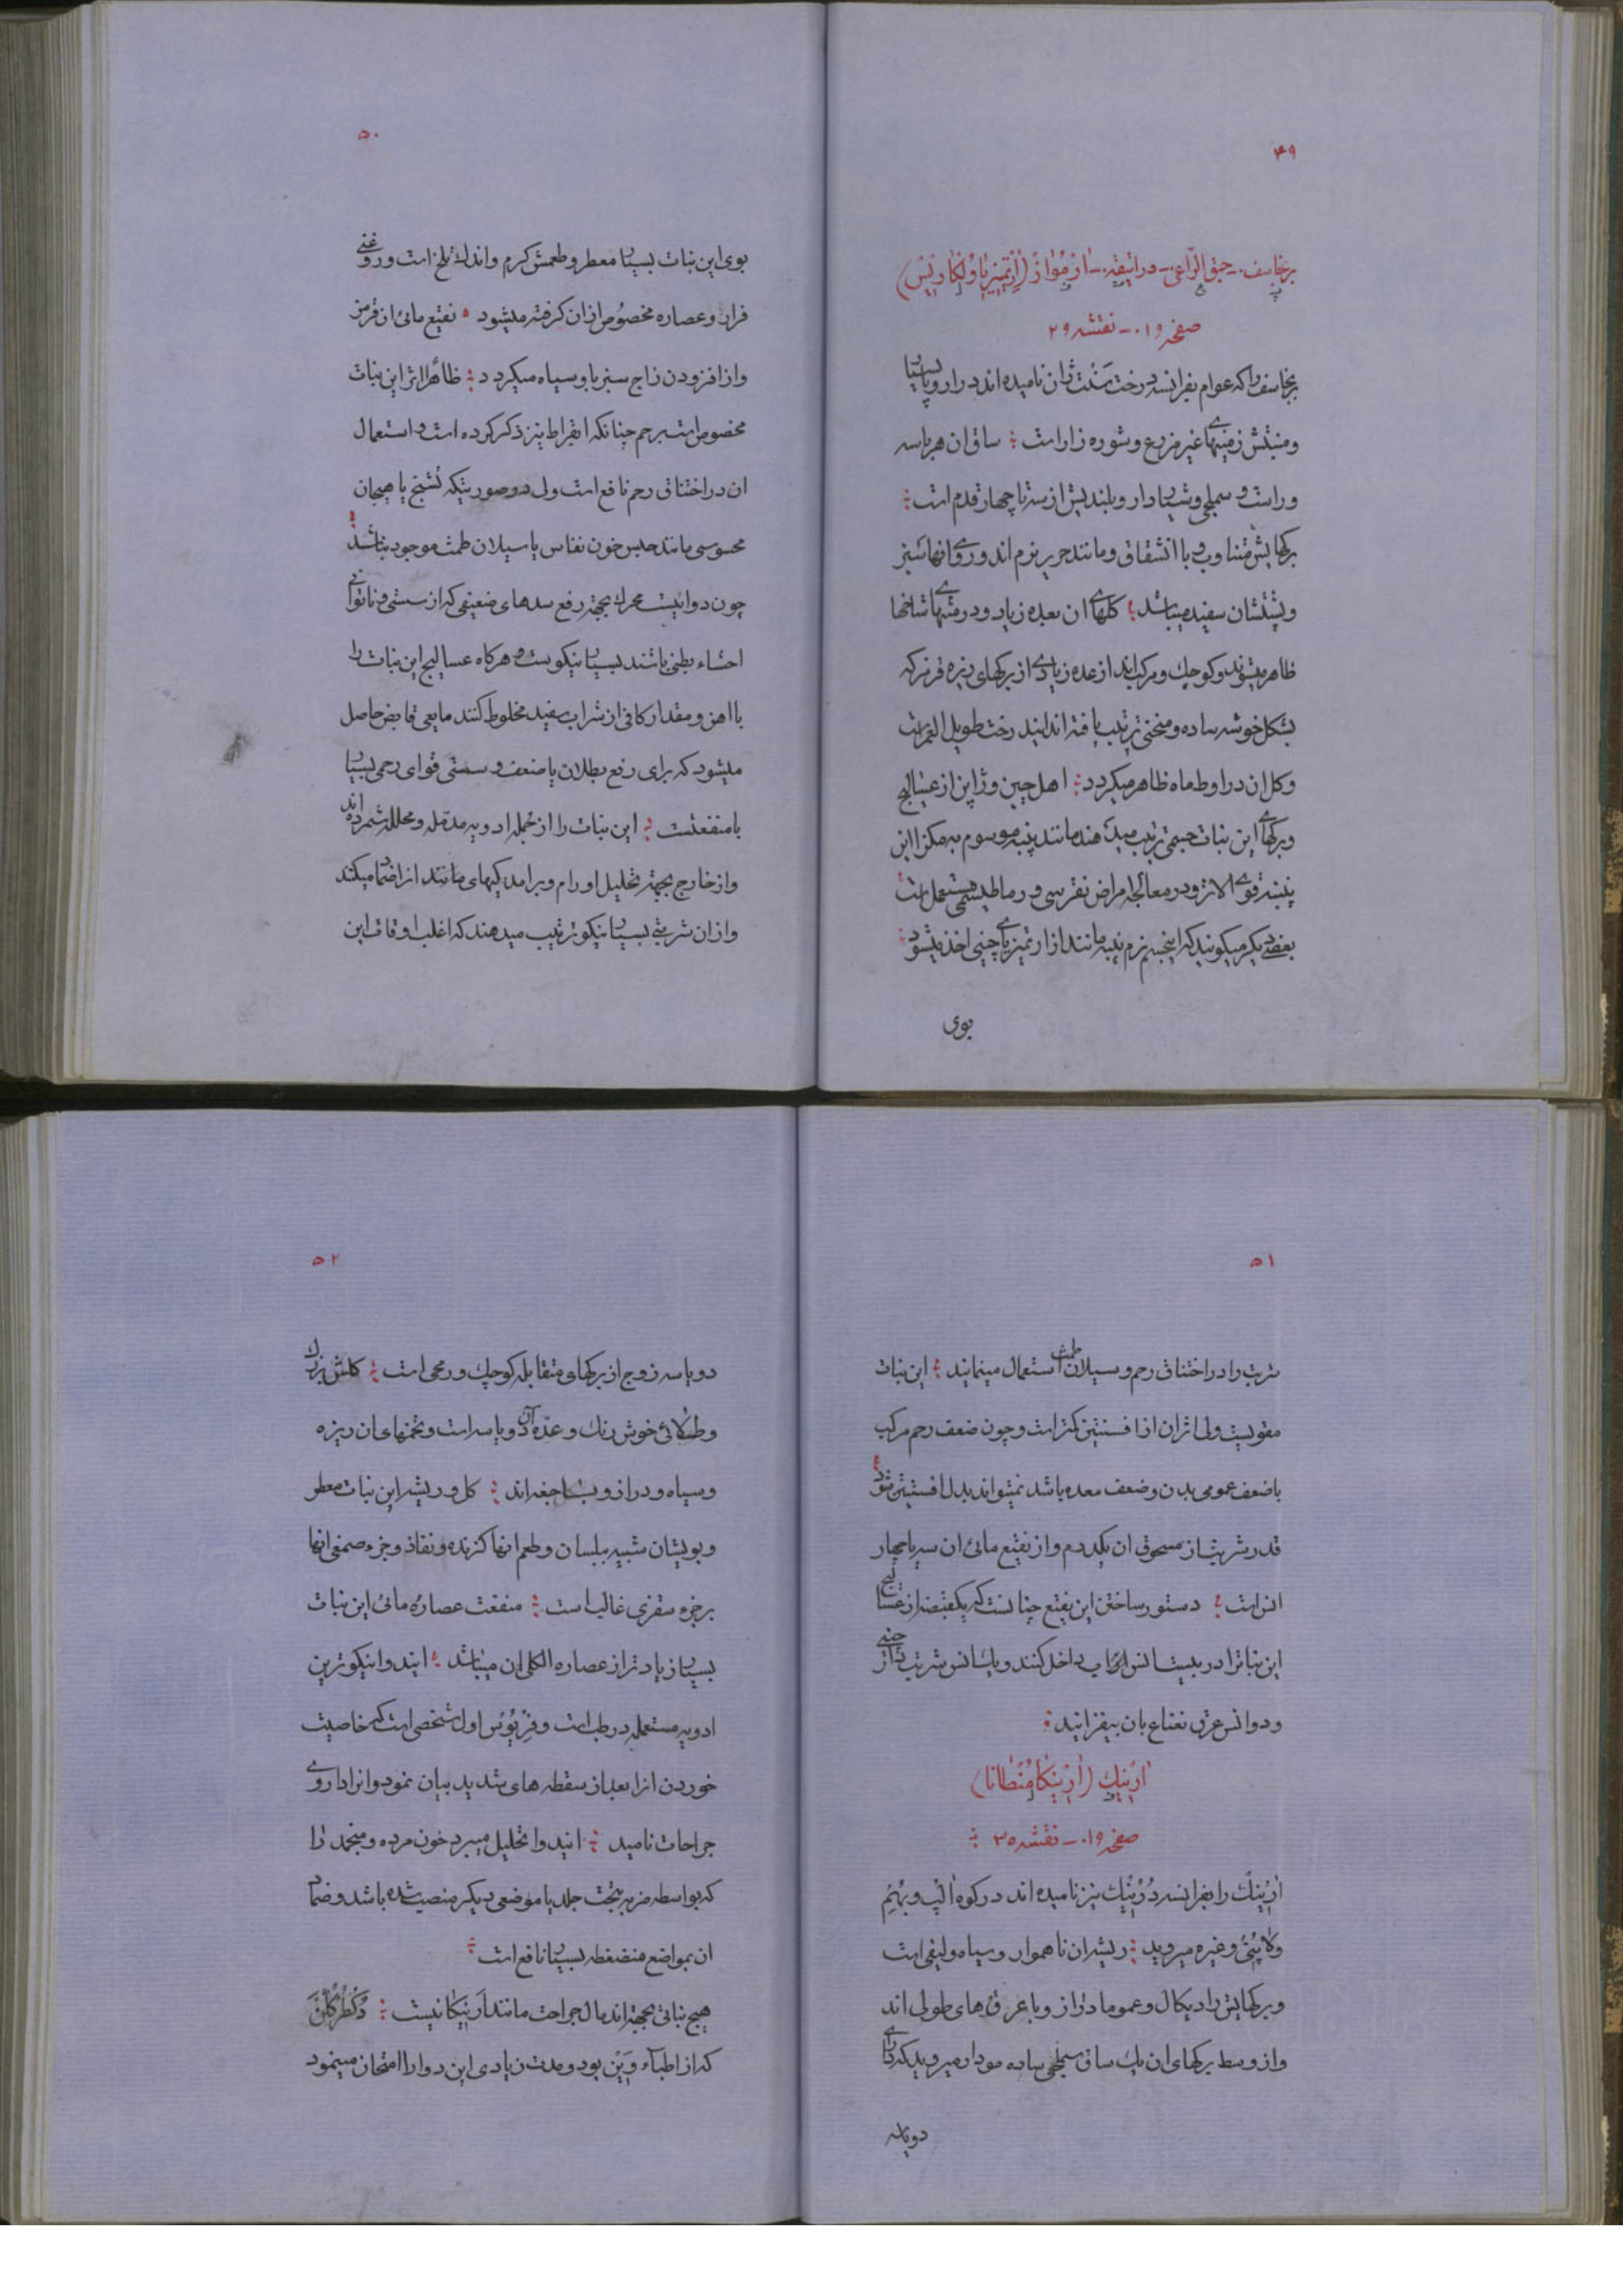 ۴۹
برنجاسف - حبق الراعی - دراتیقه - ارمواز (ارتمیزیا ولکاریس)
صفحه ۰۱۹ - نقشه ۲۹
برنجاسف را که عوام بفرانسه درخت سنت ژان نامیده اند در اروپا بسیار
و منبتش زمینهای غیر مزروع و شوره زار است ؛ ساق ان هر باسه
و راست و سملجی و شیاردار و بلندیش از سه تا چهار قدم است ؛
برکهایش متناوب و با انشقاق و مانند حریر نرم اند و روی انها سبز
و پشتشان سفید میباشد ؛ کلهای ان بعده زیاد و در منتهای شاخها
ظاهر میشوند و کوچک و مرکب اند از عده زیادی از برکهای ریزه قرمز که
بشکل خوشه ساده و منحنی ترتیب یافته اند ایندرخت طویل العمر است
و کل ان در اواسط ماه ظاهر میکردد ؛ اهل چین و ژاپن از عسالیج
و برکهای این نبات جسمی ترتیب میدهند مانند پنبه موسوم به مکزا این
پنبه قوی الاثر و در معالجه امراض نقرسی و رماطیسمی مستعمل است ؛
بعضی دیکر میکویند که اینجسم نرم پنبه مانند از ارتمیزیای چینی اخذ میشود ؛
بوی
۵۰
بوی این نبات بسیار معطر و طعمش کرم و اندک تلخ است و روغنی
فرار و عصاره مخصوص از ان کرفته میشود ؛ نقیع مائی ان قرمز
و از افزودن زاج سبز با و سیاه میکردد ؛ ظاهرا اثر این نبات
مخصوص است برحم چنانکه ابقراط نیز ذکر کرده است و استعمال
ان در اختناق رحم نافع است ولی در صورتیکه تشنج یا هیجان
محسوسی مانند حبس خون نفاس یا سیلان طمث موجود نباشد ؛
چون دوائیست محرک بجهة رفع سدهای ضعیفی که از سستی و ناتوانی
احشاء بطنی باشند بسیار نیکوست و هرکاه عسالیج این نبات را
با اهن و مقدار کافی از شراب سفید مخلوط کنند مایعی قابض حاصل
میشود که برای رفع بطلان یا ضعف و سستی قوای رحمی بسیار
با منفعتست ؛ این نبات را از جمله ادویه مدمله و محلله شمرده اند
و از خارج بجهة تحلیل اورام و برامدکیهای مانند از اضماد میکند
و از ان شربتی بسیار نیکو ترتیب میدهند که اغلب اوقات این
۵۱
شربت را در اختناق رحم و سیلان طمث استعمال مینمایند ؛ این نبات
مقویست ولی اثر ان از افسنتین کمتر است و چون ضعف رحم مرکب
با ضعف عمومی بدن و ضعف معده باشد نمیتواند بدل افسنتین شود ؛
قدر شربت از مسحوق ان یکدرم و از نقیع مائی ان سه یا چهار
انس است ؛ دستور ساختن این نقیع چنانست که یکقبضه از عسالیج
این نبات را در بیست انس اب داخل کنند و یک انس شربت
و دو انس عرق نعناع بان بیفزایند ؛
ارنیک (ارنیکا منطانا)
صفحه ۰۱۹ - نقشه ۳۰ ؛
ارنیک را بفرانسه درنیک نیز نامیده اند در کوه الپ و بهم
و لاپنی و غیره میروید ؛ ریشه ان ناهموار و سیاه و لیفی است
و برکهایش رادیکال و عموما دراز و با عرق های طولی اند
و از وسط برکهای ان یک ساق سملجی ساده مودار میروید که دارای
دو یا سه
۵۲
دو یا سه زوج از برکهای متقابله کوچک و رمحی است ؛ کلش بزرک
و طلائی خوش رنک و عده آن دو یا سه است و تخمهای ان ریزه
و سیاه و دراز و با جغه اند ؛ کل و ریشه این نبات معطر
و بویشان شبیه ببلسان و طعم انها کزنده و نفاذ و جزء صمغی انها
بر جزء سقزی غالب است ؛ منفعت عصاره مائی این نبات
بسیار زیادتر از عصاره الکلی ان میباشد ؛ ایندوا نیکوترین
ادویه مستعمله در طب است و فریوس اول شخصی است که خاصیت
خوردن انرا بعد از سقطه های شدید بیان نمود و انرا داروی
جراحات نامید ؛ ایندوا تحلیل میبرد خون مرده و منجمد را
که بواسطه ضربه بتحت جلد یا موضعی دیکر منصب شده باشد و ضماد
ان بمواضع منضغطه بسیار نافع است ؛
هیچ نباتی بجهة اندمال جراحت مانند ارنیکا نیست ؛ دکطر کلن
که از اطبآء وین بود و مدت زیادی این دوا را امتحان مینمود